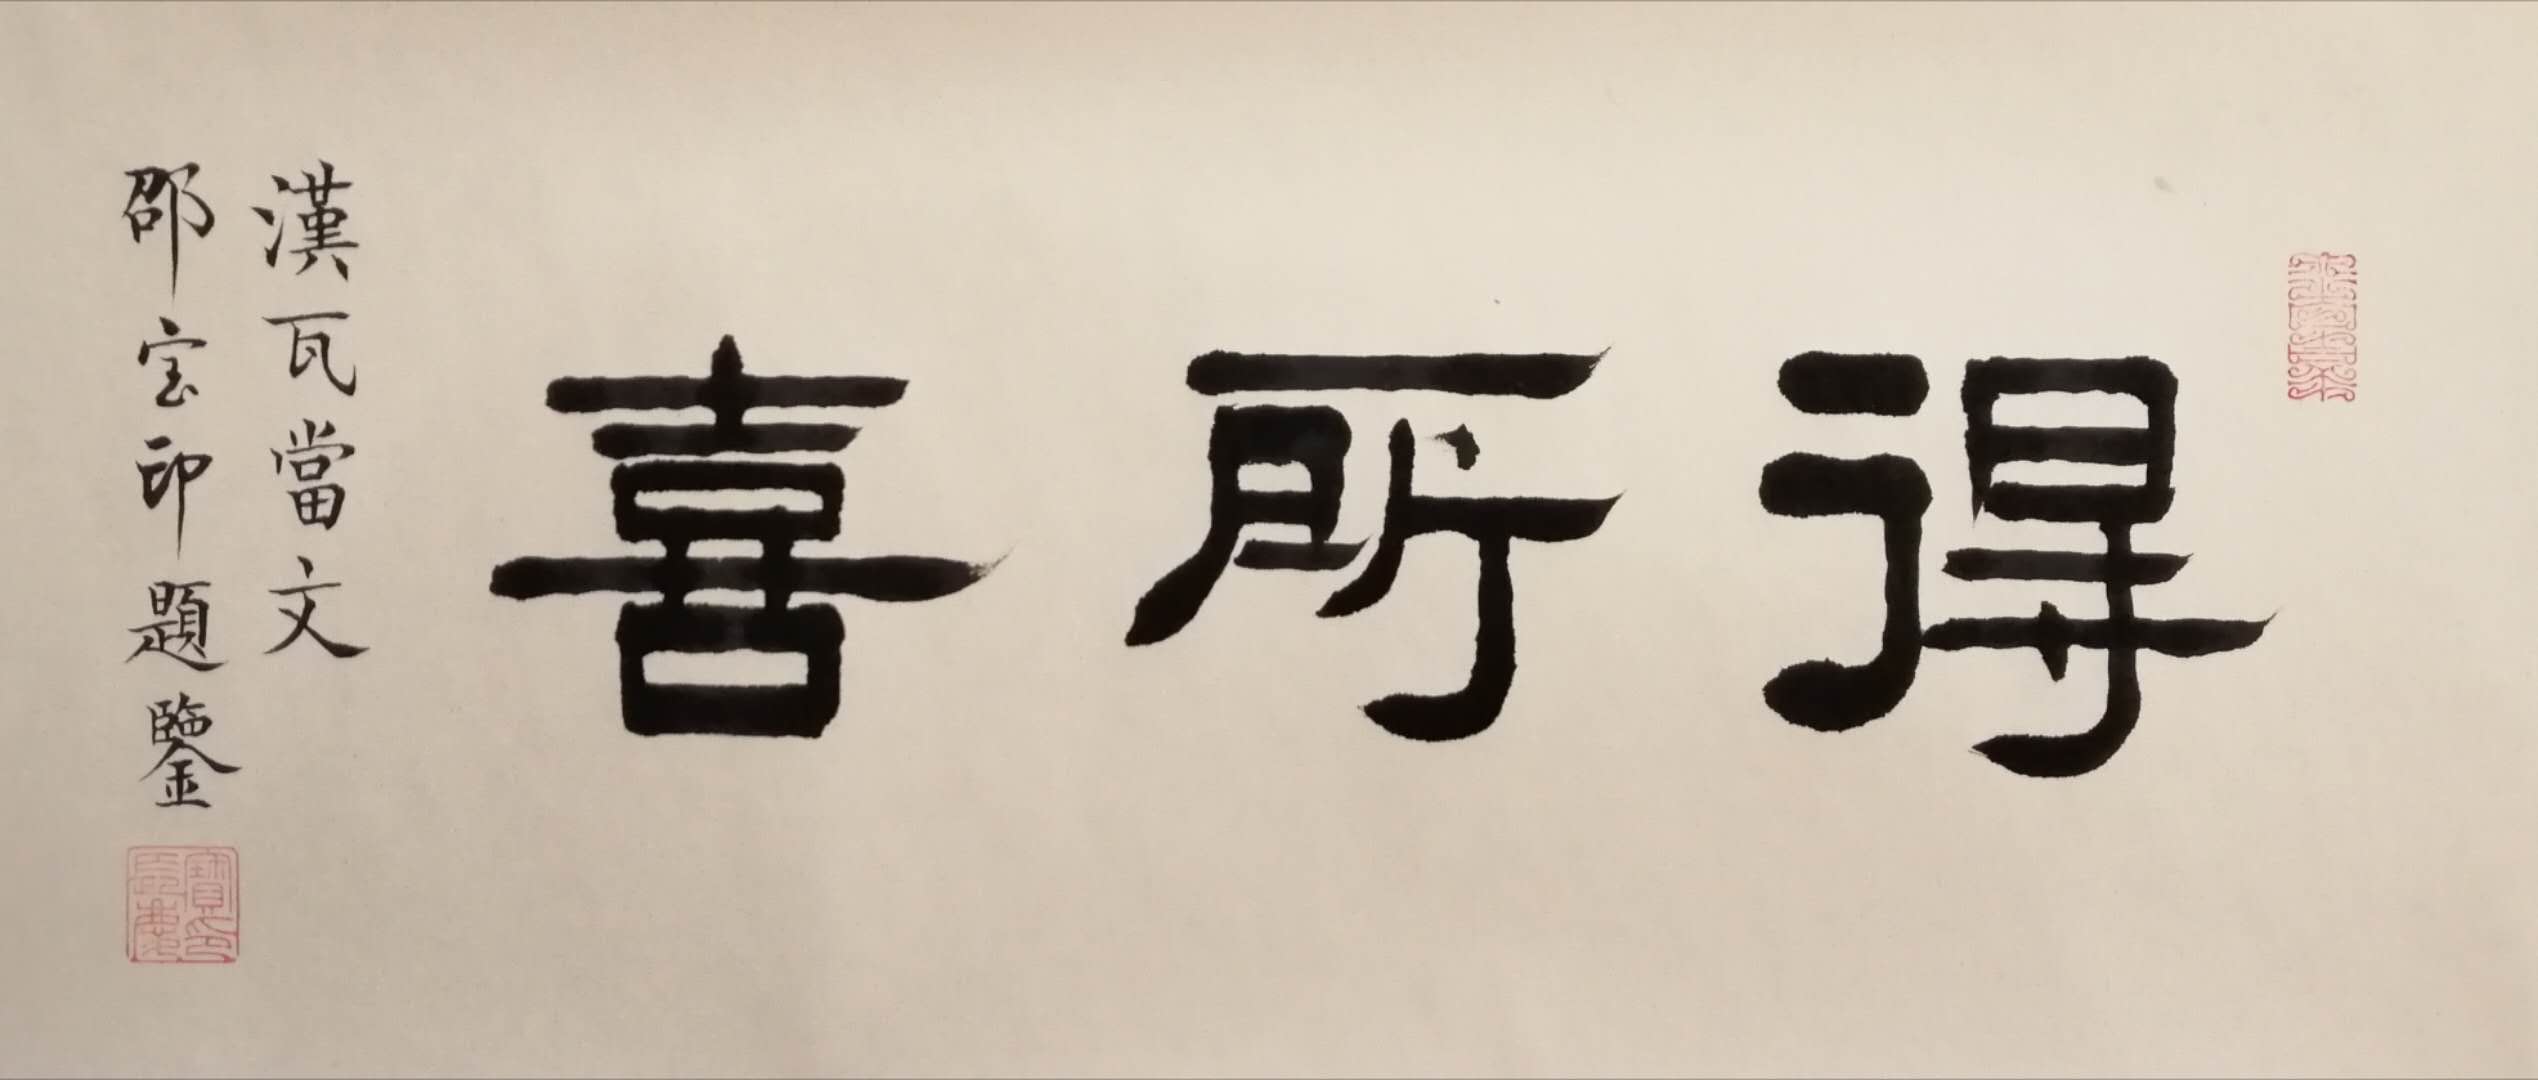 得所喜
漢瓦當文
邵宝印題鑒